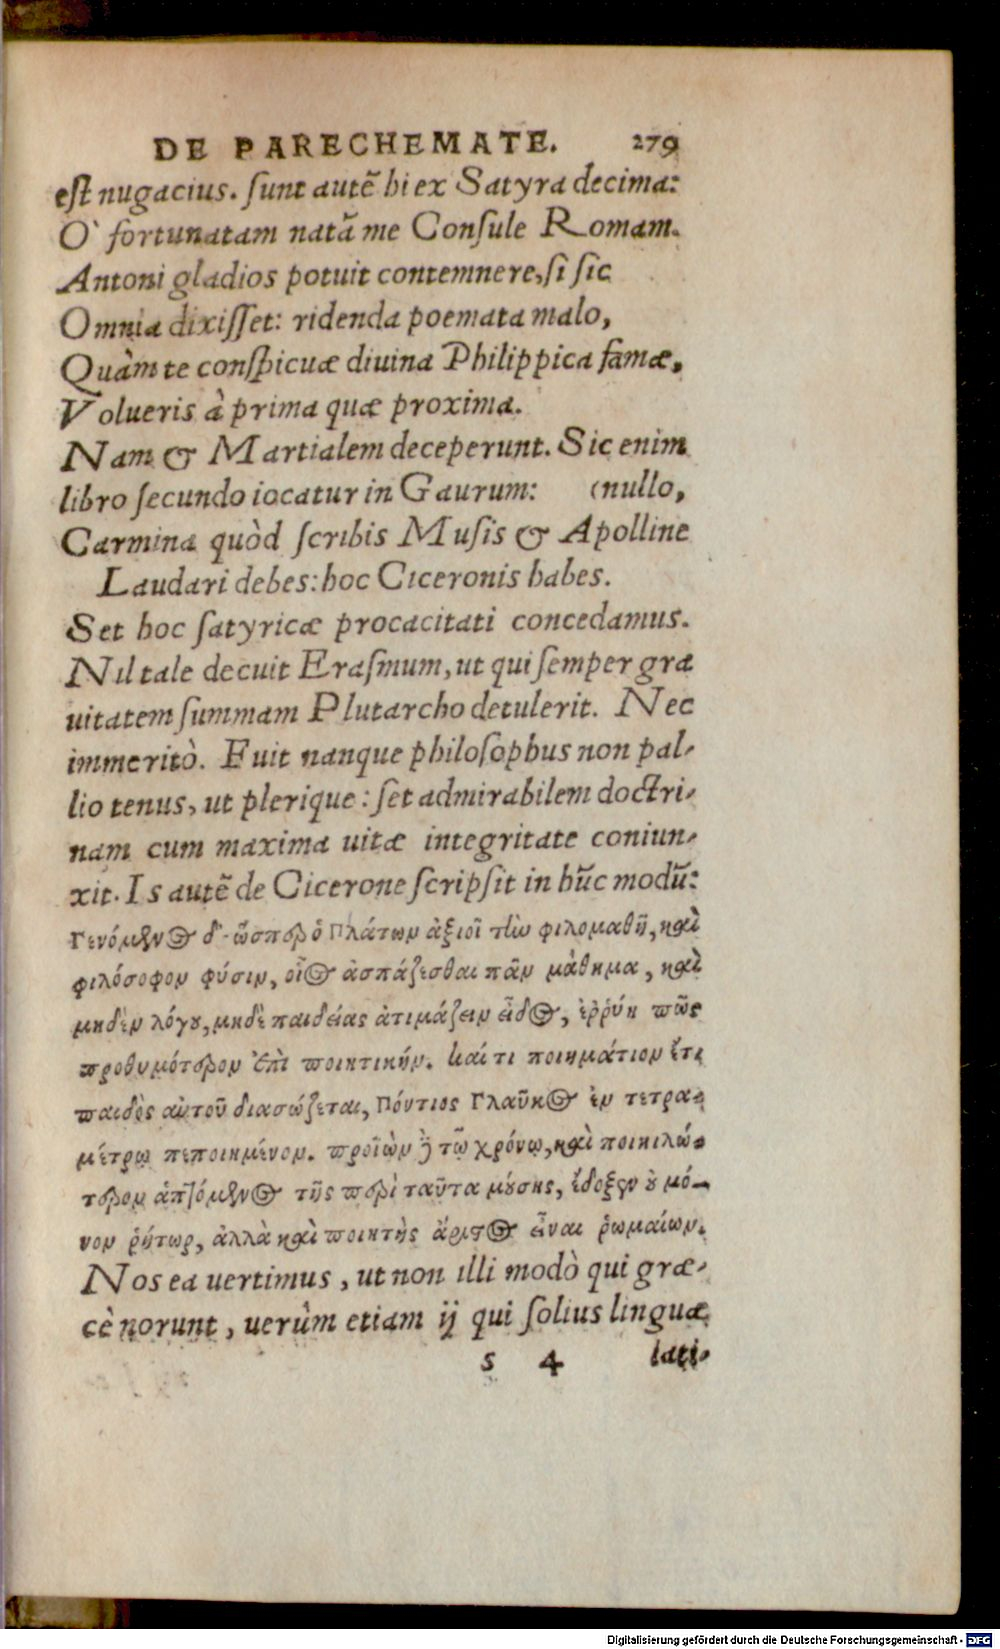 DE PARECHEMATE. 279
est nugacius. sunt autē hi ex Satyra decima:
O` fortunatam natā me Consule Romam.
Antoni gladios potuit contemnere, si sic
Omnia dixisset: ridenda poemata malo,
Quàm te conspicuæ diuina Philippica famæ,
Volueris à prima quæ proxima.
Nam & Martialem deceperunt. Sic enim
libro secundo iocatur in Gaurum: (nullo,
Carmina quòd scribis Musis & Apolline
Laudari debes: hoc Ciceronis habes.
Set hoc satyricæ procacitati concedamus.
Nil tale decuit Erasmum, ut qui semper gra
uitatem summam Plutarcho detulerit. Nec
immeritò. Fuit nanque philosophus non pal-
lio tenus, ut plerique: set admirabilem doctri-
nam cum maxima uitæ integritate coniun-
xit. Is autē de Cicerone scripsit in hūc modū:
Γενόμενος δ' ὥσπερ ὁ Πλάτων ἀξιοῖ τὴν φιλομαθῆ, καὶ
φιλόσοφον φύσιν, οἷος ἀσπάζεσθαι πᾶν μάθημα, καὶ
μηδὲν λόγου, μηδὲ παιδείας ἀτιμάζειν εἶδος, ἐῤῥύη πως
προθυμότερον ἐπὶ ποιητικήν. καί τι ποιημάτιον ἔτι
παιδὸς αὐτοῦ διασώζεται, Πόντιος Γλαῦκος ἐν τετρα-
μέτρῳ πεποιημένον. προϊὼν δὲ τῷ χρόνῳ, καὶ ποικιλώ-
τερον ἁπτόμενος τῆς περὶ ταῦτα μούσης, ἔδοξεν οὐ μό-
νον ῥήτωρ, ἀλλὰ καὶ ποιητὴς ἄριστος εἶναι ῥωμαίων.
Nos ea uertimus, ut non illi modò qui græ-
cè norunt, uerùm etiam ij qui solius linguæ
s 4 lati-
Digitalisierung gefördert durch die Deutsche Forschungsgemeinschaft - DFG